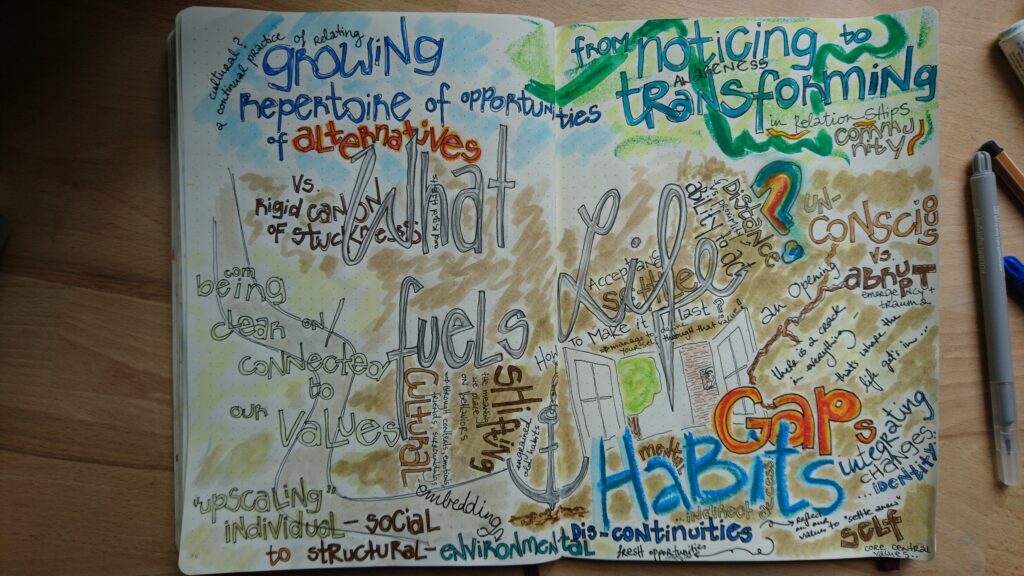 cultural?
a continual practice of relating
growing
repertoire of opportunities
of alternatives
vs.
Rigid canon
of stuckness
and Rigid Habits
What
fuels
Life
?
from noticing to
Awareness
transforming
in relationships
community
Distance
ability to act
un-
conscious
vs.
abrupt
Acceptance
settle
How to make it last
an opening
there is a crack
in everything -
that's where the
life gets in...
becoming
being
clean on/
connected
to
our
values
cultural
shifting
embedding
ingrained
old habits
Gaps
mental
Habits
integrating
changes..
... identity
"upscaling"
individual - social
to structural - environmental
Dis-continuities
fresh opportunities
Reflect
values to "settle anew"
self
core central
values..